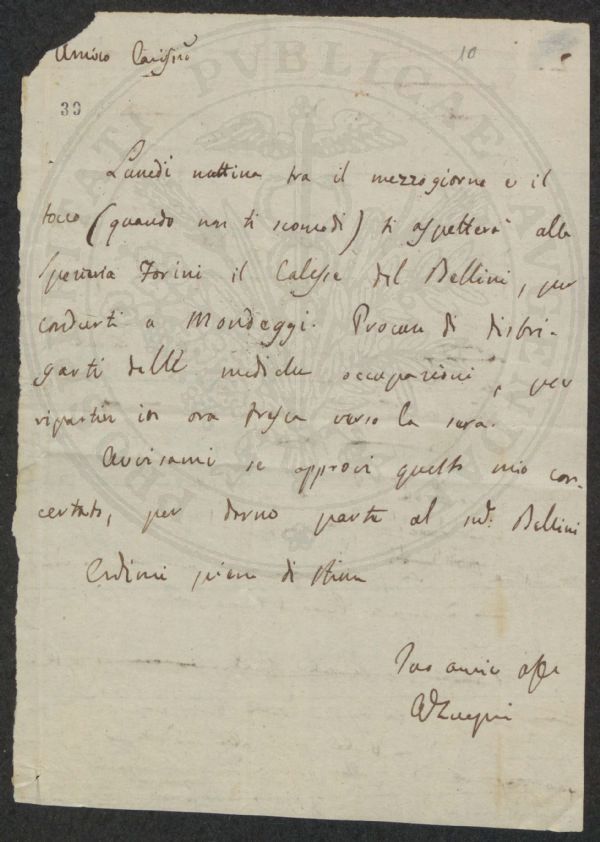 Amico Cariss:mo
10
39
Lunedì mattina tra il mezzogiorno e il
tocco (quando non ti scomodi) ti aspetterà alla
Spezieria Forini il Calesse del Bellini, per
condurti a Mondeggi. Procura di disbri-
garti delle mediche occupazioni, per
ripartir in ora fresca verso la sera.
Avvisami se approvi questo mio con-
certato, per darne parte al sud. Bellini
Credimi pieno di stima
Tuo amico affe